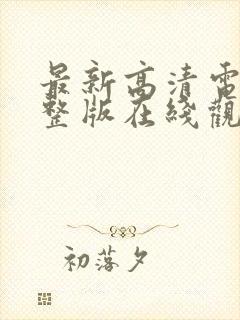 最新高清電
整版在綫觀
初落夕